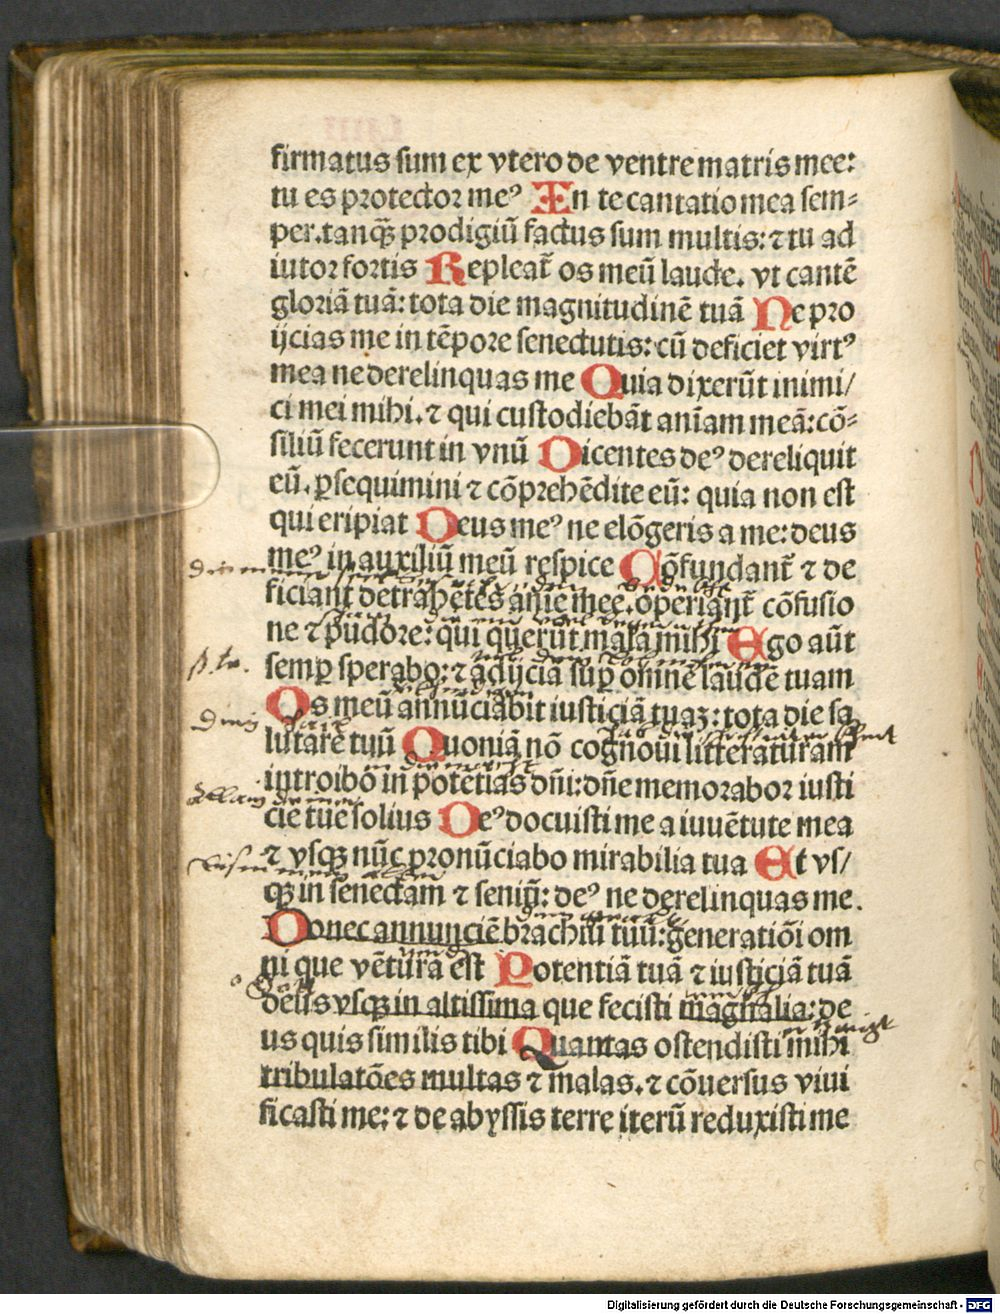 firmatus sum ex vtero de ventre matris mee:
tu es protector meꝰ In te cantatio mea sem⸗
per.tanqȝ̃ prodigiũ factus sum multis: ⁊ tu ad
iutor fortis Repleat̃ os meũ laude. vt cantẽ
gloriã tuã: tota die magnitudinẽ tuã Ne pro
ijcias me in tẽpore senectutis: cũ deficiet virtꝰ
mea ne derelinquas me Quia dixerũt inimi/
ci mei mihi. ⁊ qui custodiebãt aniãm meã: cõ⸗
siliũ fecerunt in vnũ Dicentes deꝰ dereliquit
eũ. ꝑsequimini ⁊ cõprehẽdite eũ: quia non est
qui eripiat Deus meꝰ ne elõgeris a me: deus
meꝰ in auxiliũ meũ respice Cõfundant̃ ⁊ de
ficiant detrahẽtes aĩe mee. operiant̃ cõfusio
ne ⁊ pudore: qui querũt mala mihi Ego aũt
semꝑ sperabo: ⁊ adijciã suꝑ omnẽ laudẽ tuam
Os meũ annũciabit iusticiã tuaȝ: tota die sa
lutare tuũ Quoniã nõ cognoui litteraturam
introibo in potẽtias dñi: dñe memorabor iusti
cie tue solius Deꝰ docuisti me a iuuẽtute mea
⁊ vsqȝ nũc pronũciabo mirabilia tua Et vs/
qȝ in senectam ⁊ seniũ: deꝰ ne derelinquas me.
Donec annunciẽ brachiũ tuũ: generatiõi om
ni que vẽtura est Potentiã tuã ⁊ iusticiã tuã
deus vsqȝ in altissima que fecisti magnalia: de
us quis similis tibi Quantas ostendisti mihi
tribulatões multas ⁊ malas. ⁊ cõuersus viui
ficasti me: ⁊ de abyssis terre iterũ reduxisti me
Digitalisierung gefördert durch die Deutsche Forschungsgemeinschaft - DFG